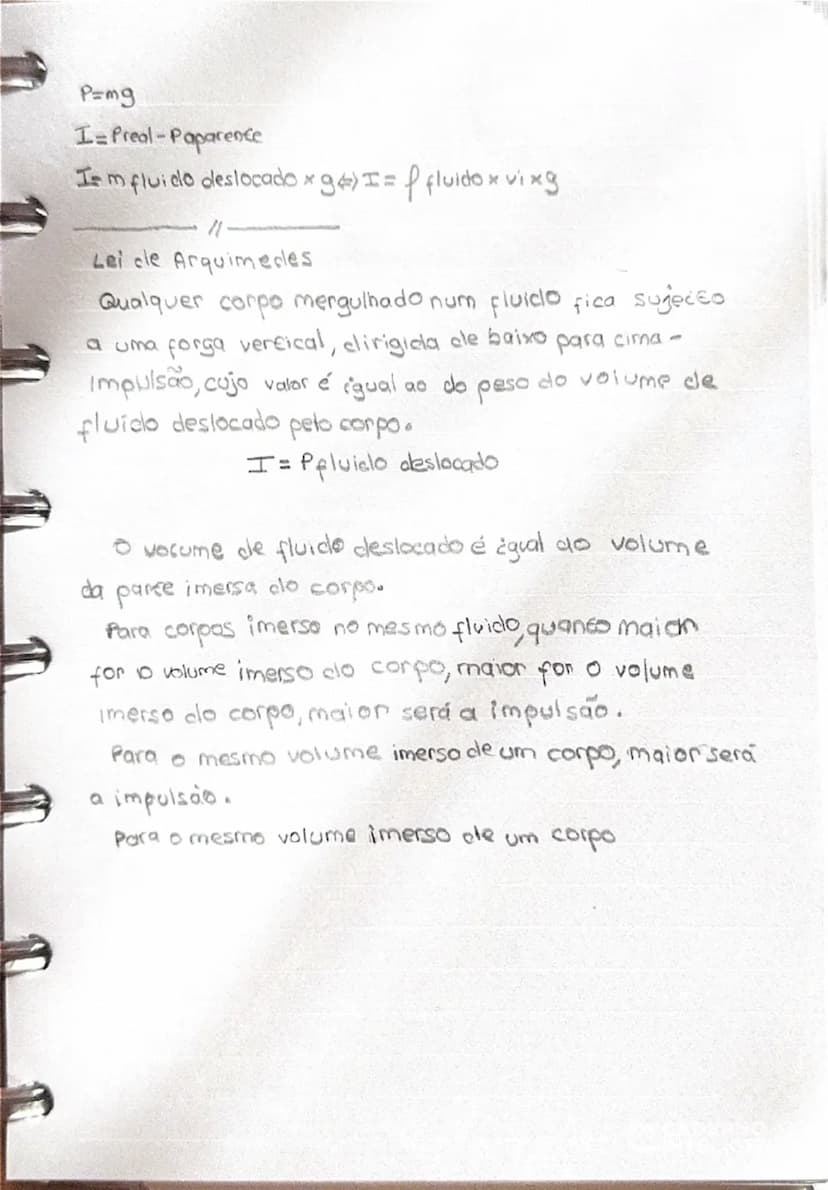 P=mg
I=Preal-Paparente
I=m fluido deslocado x g⇔I=ρ fluido x vi x g
//
Lei de Arquimedes
Qualquer corpo mergulhado num fluido fica sujeito
a uma força vertical, dirigida de baixo para cima -
Impulsão, cujo valor é igual ao do peso do volume de
fluído deslocado pelo corpo.
I = Pfluido deslocado
O volume de fluido deslocado é igual ao volume
da parte imersa do corpo.
Para corpos imerso no mesmo fluido, quanto maior
for o volume imerso do corpo, maior for o volume
imerso do corpo, maior será a impulsão.
Para o mesmo volume imerso de um corpo, maior será
a impulsão.
Para o mesmo volume imerso de um corpo